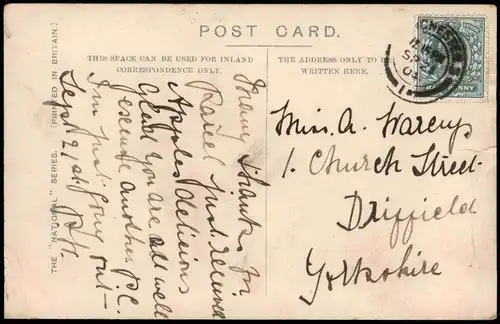 POST CARD.
THE "NATIONAL" SERIES. [PRINTED IN BRITAIN.]
THIS SPACE CAN BE USED FOR INLAND
CORRESPONDENCE ONLY.
THE ADDRESS ONLY TO BE
WRITTEN HERE.
Many thanks for
Parcel just received
Apples delicious
Glad you are all well
Excuse another P.C.
I'm just going out—
Sept 21st
Miss. A. Warcup
1. Church Street.
Driffield
Yorkshire